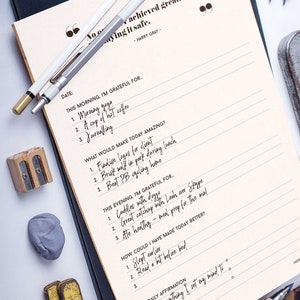 No achieved great
playing it safe.
- HARRY GRAY -
DATE:
THIS MORNING, I'M GRATEFUL FOR...
1. Morning yoga
2. A cup of hot coffee
3. Journalling
WHAT WOULD MAKE TODAY AMAZING?
1. Finalise logos for client
2. Brisk walk in park during lunch
3. Beat PB cycling home
THIS EVENING, I'M GRATEFUL FOR...
1. Cuddles with doggo
2. Great catchup with Leah over Skype
3. Ate healthy - meal prep for the win!
HOW COULD I HAVE MADE TODAY BETTER?
1. Slept earlier
2. Read a bit before bed
DAILY AFFIRMATION
anything I set my mind to